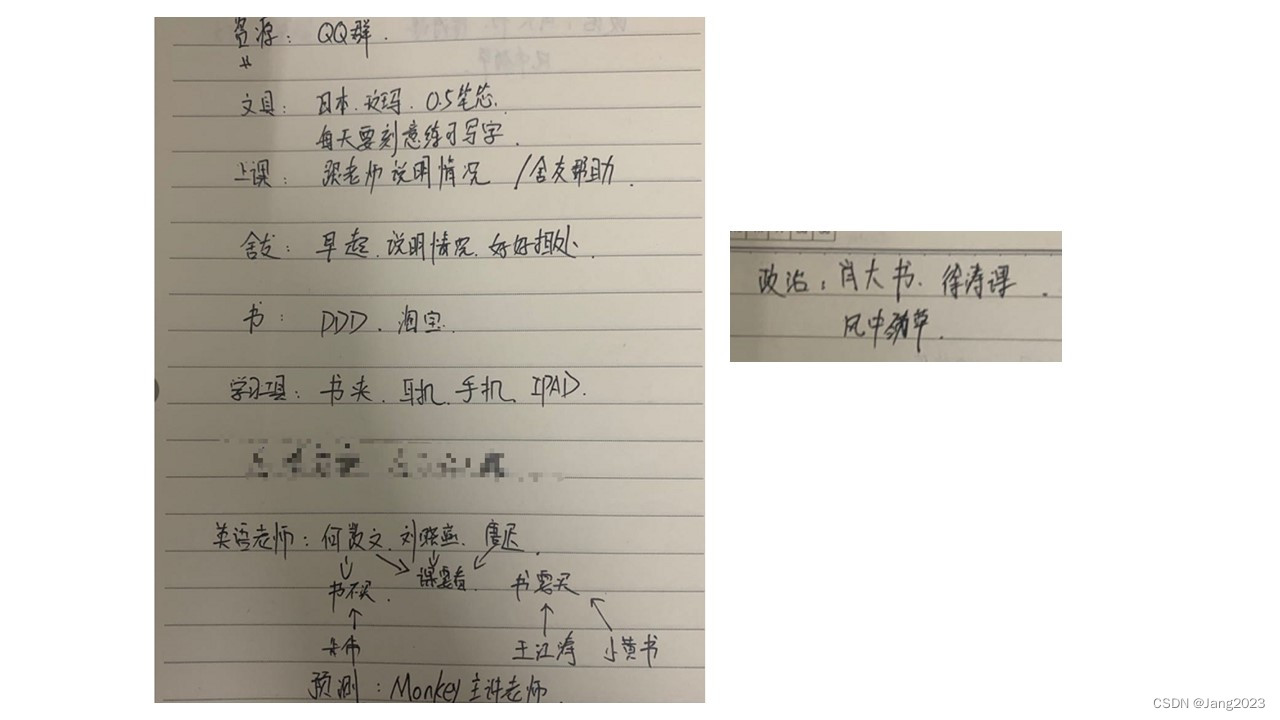 资源: QQ群.
文具: 日本.斑玛. 0.5笔芯.
每天要刻意练习写字.
上课: 跟老师说明情况 /舍友帮助.
舍友: 早起.说明情况.好好相处.
书: PDD.淘宝.
学习工具: 书夹.耳机.手机.IPAD.
英语老师: 何凯文.刘晓燕.唐迟.
书不买. 课要看. 书要买
王江涛 小黄书
预测: Monkey主讲老师.
政治: 肖大书.徐涛课.
风中劲草.
CSDN @Jang2023